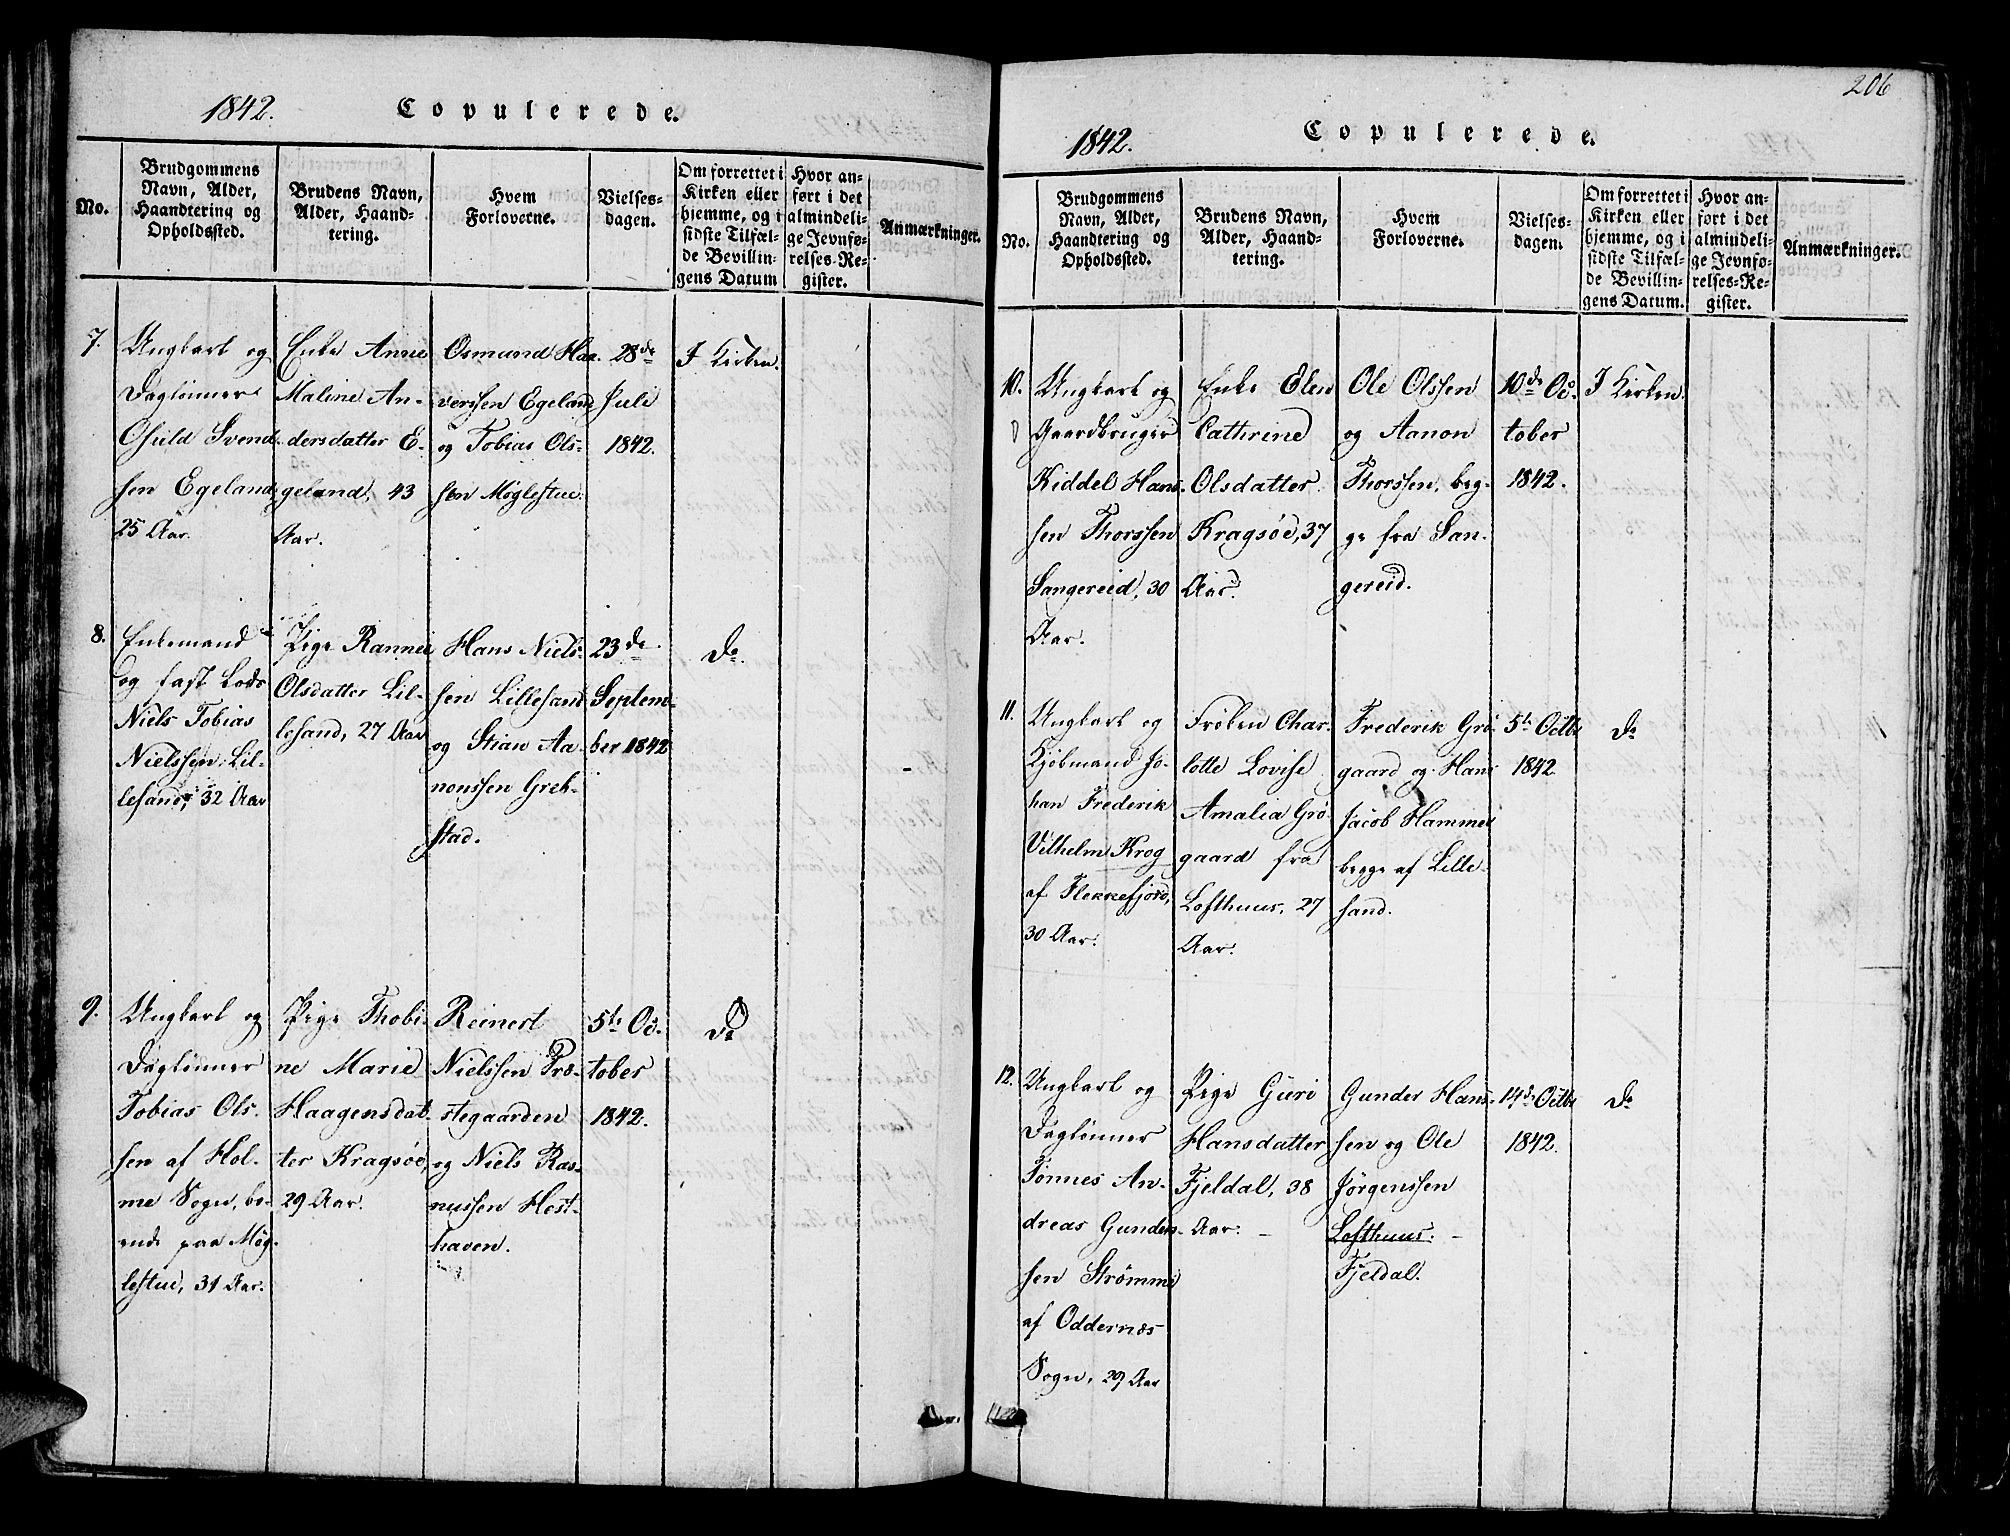 1842. Copulerede.
No.
Brudgommens
Navn, Alder,
Haandtering og
Opholdssted.
Brudens Navn,
Alder, Haand-
tering.
Hvem
Forloverne.
Vielses-
dagen.
Om forrettet i
Kirken eller
hjemme, og i
sidste Tilfæl-
de Bevillin-
gens Datum
Hvor an-
ført i det
almindeli-
ge Jevnfø-
relses-Re-
gister.
Anmærkninger.
7.
Ungkarl og
Daglønner
Osuld Svend-
sen Egeland,
25 Aar.
Enke Anne
Maline An-
dersdatter E-
geland, 43
Aar.
Osmund Haa-
verssen Egeland
og Tobias Ols-
sen Møglestue.
28de
Juli
1842.
I Kirken.
8.
Enkemand
og fast Lods
Niels Tobias
Nielssen, Lil-
lesand, 32 Aar
Pige Rannei
Olsdatter Lil-
lesand, 27 Aar
Hans Niels-
sen Lillesand
og Stian Aa-
nonssen Greb-
stad.
23de
Septem-
ber 1842
Do
9.
Ungkarl og
Daglønner
Tobias Ols-
sen af Hol-
me Sogn, bo-
ende paa Møg-
lestue, 31 Aar.
Pige Thobi-
ne Marie
Haagensdat-
ter Kragsøe,
29 Aar.
Reinert
Nielssen Præ-
stegaarden
og Niels Ras-
mussen Hest-
haven.
5te Oc-
tober
1842.
Do
206
1842. Copulerede.
No.
Brudgommens
Navn, Alder,
Haandtering og
Opholdssted.
Brudens Navn,
Alder, Haand-
tering.
Hvem
Forloverne.
Vielses-
dagen.
Om forrettet i
Kirken eller
hjemme, og i
sidste Tilfæl-
de Bevillin-
gens Datum.
Hvor an-
ført i det
almindeli-
ge Jevnfø-
relses-Re-
gister.
Anmærkninger.
10.
Ungkarl og
Gaardbruger
Kiddel Hans-
sen Thorssen
Sangereid, 30
Aar.
Enke Elen
Cathrine
Olsdatter
Kragsøe, 37
Aar.
Ole Olssen
og Aanon
Thorssen, beg-
ge fra San-
gereid.
10de Oc-
tober
1842.
I Kirken.
11.
Ungkarl og
Kjøbmand Jo-
han Frederik
Vilhelm Krog
af Flekkefjord,
30 Aar.
Frøken Char-
lotte Lovise
Amalia Grø-
gaard fra
Lofthuus, 27
Aar.
Frederik Grø-
gaard og Hans
Jacob Hammer
begge af Lille-
sand.
5te Octbr
1842.
Do
12.
Ungkarl og
Daglønner
Tønnes An-
dreas Gunders-
sen Strømme
af Oddernæs
Sogn, 29 Aar
Pige Guri
Hansdatter
Fjeldal, 38
Aar. -
Gunder Hans-
sen og Ole
Jørgenssen
Lofthuus. -
Fjeldal.
14de Octbr
1842.
Do